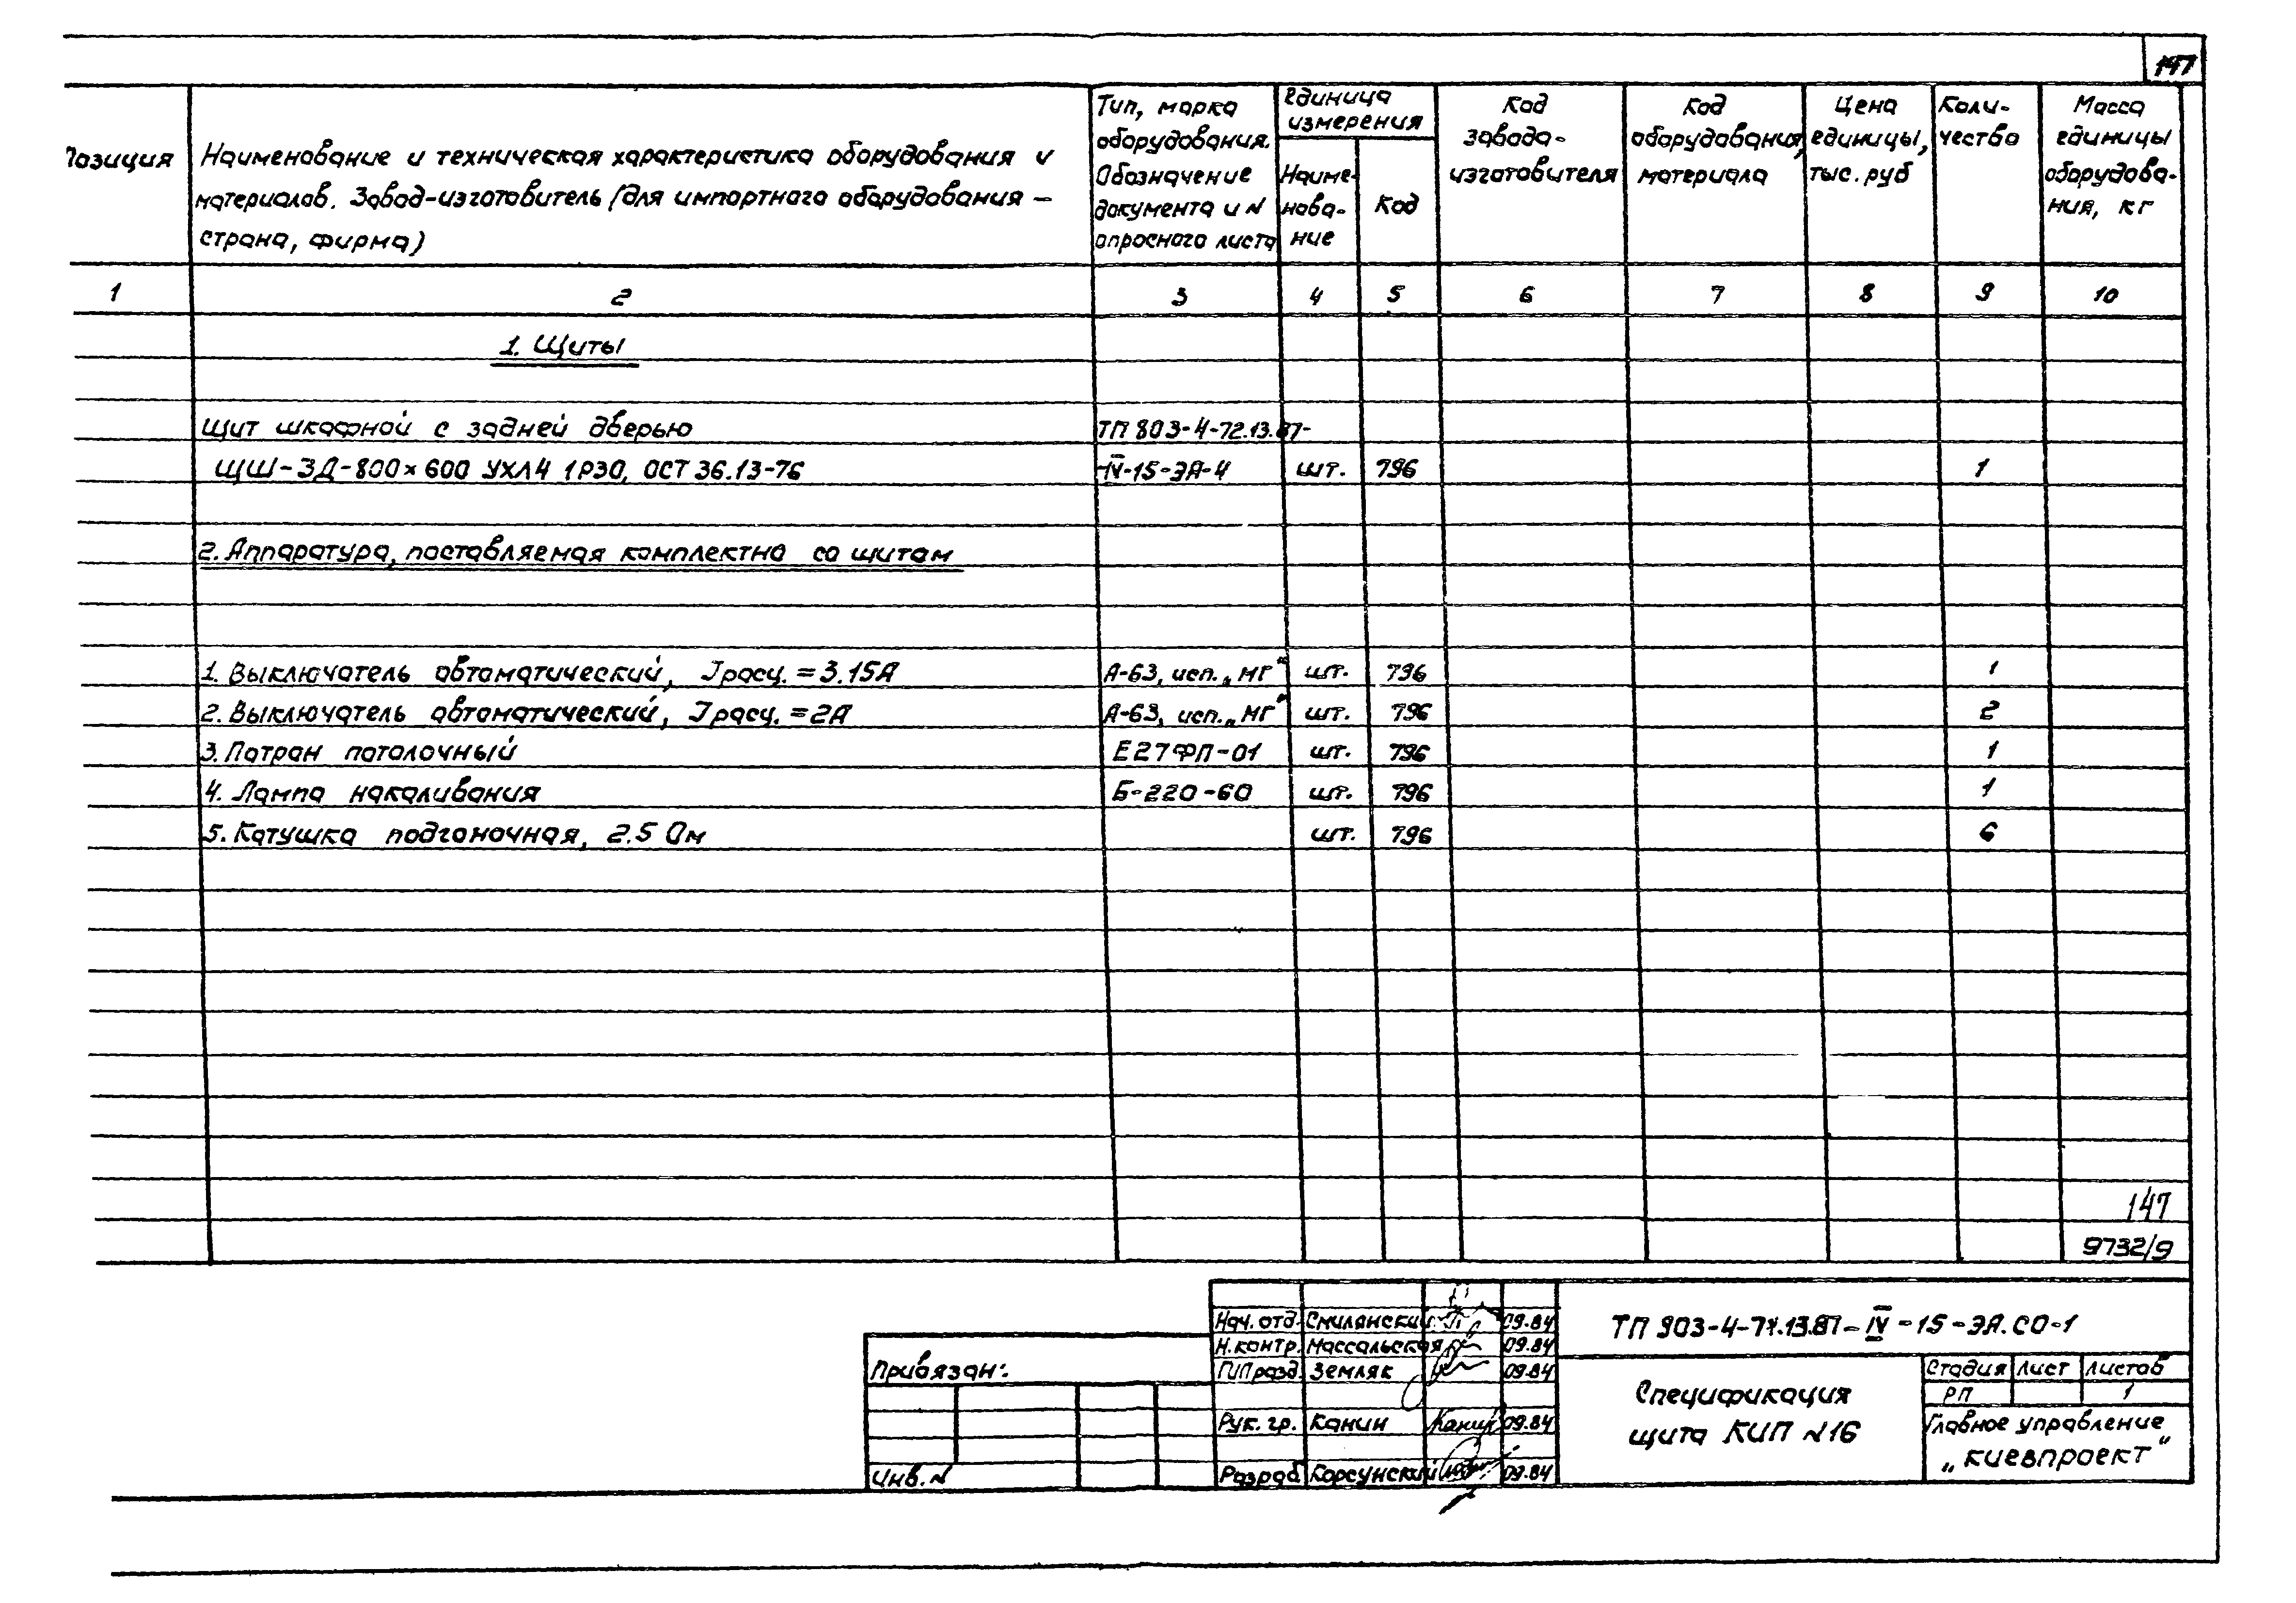 147
Позиция
Наименование и техническая характеристика оборудования и
материалов. Завод-изготовитель (для импортного оборудования –
страна, фирма)
Тип, марка
оборудования.
Обозначение
документа и N
опросного листа
Единица
измерения
Наиме-
нова-
ние
Код
Код
завода-
изготовителя
Код
оборудования,
материала
Цена
единицы,
тыс. руб
Коли-
чество
Масса
единицы
оборудова-
ния, кг
1 2 3 4 5 6 7 8 9 10
1. Щиты
Щит шкафной с задней дверью ТП 803-4-72.13.87-
ЩШ-ЗД-800×600 УХЛ4 1Р30, ОСТ 36.13-76 -IV-15-ЭА-4 шт. 796 1
2. Аппаратура, поставляемая комплектно со щитам
1. Выключатель автоматический, Iрасц. = 3.15А А-63, исп. „МГ" шт. 796 1
2. Выключатель автоматический, Iрасц. = 2А А-63, исп. „МГ" шт. 796 2
3. Патрон потолочный Е27ФП-01 шт. 796 1
4. Лампа накаливания Б-220-60 шт. 796 1
5. Катушка подгоночная, 2.5 Ом шт. 796 6
147
9732/9
Нач. отд. Смилянский 09.84
Н. контр. Массальская 09.84
ГИП разд. Земляк 09.84
Рук. гр. Канин Канин 09.84
Разраб Корсунский 09.84
Привязан:
Инв. N
-IV-15-ЭА.СО-1
Спецификация
щита КИП N16
Стадия Лист Листов
РП 1
Главное управление
„Киевпроект"